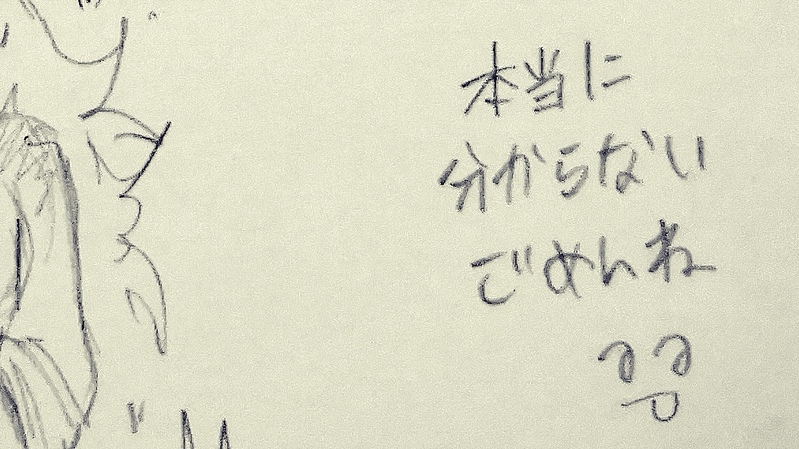 本当に
分からない
ごめんね